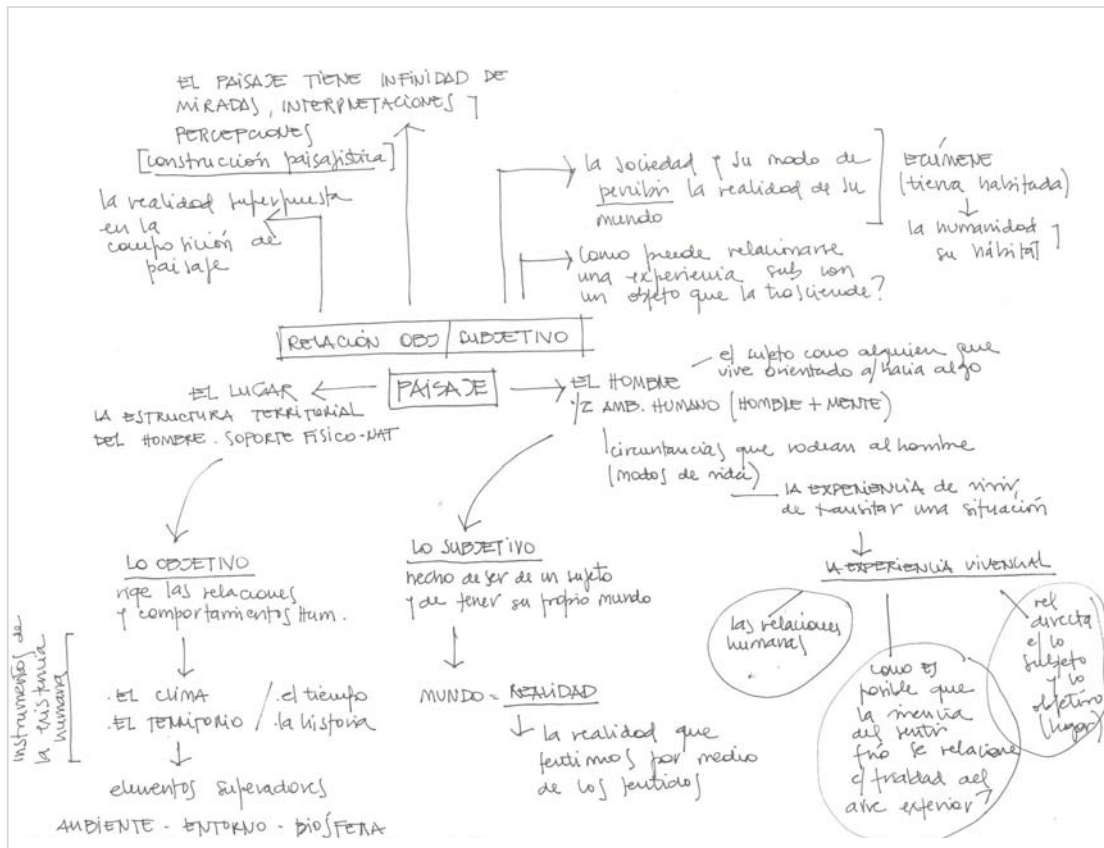 EL PAISAJE TIENE INFINIDAD DE
MIRADAS, INTERPRETACIONES Y
PERCEPCIONES
[construcción paisajística]
la realidad superpuesta
en la
composición de
paisaje
la sociedad y su modo de
percibir la realidad de su
mundo
ECÚMENE
(tierra habitada)
la humanidad
su hábitat
Como puede relacionarse
una experiencia sub con
un objeto que la trasciende?
RELACIÓN OBJ / SUBJETIVO
PAISAJE
EL LUGAR
LA ESTRUCTURA TERRITORIAL
DEL HOMBRE. SOPORTE FÍSICO-NAT
EL HOMBRE
1/2 AMB. HUMANO (HOMBRE + MENTE)
el sujeto como alguien que
vive orientado a/hacia algo
circuntancias que rodean al hombre
(modos de vida)
LA EXPERIENCIA de vivir,
de transitar una situación
LO OBJETIVO
rige las relaciones
y comportamientos Hum.
instrumentos de
la existencia
humana
.EL CLIMA
.EL TERRITORIO / .el tiempo
.la historia
elementos superadores
AMBIENTE - ENTORNO - BIÓSFERA
LO SUBJETIVO
hecho de ser de un sujeto
y de tener su propio mundo
MUNDO = REALIDAD
la realidad que
sentimos por medio
de los sentidos
LA EXPERIENCIA VIVENCIAL
las relaciones
humanas
como es
posible que
la
del sentir
frio se relacione
c/ frialdad del
aire exterior?
rel
directa
e/ lo
subjeto
y lo
objetivo
(lugar)